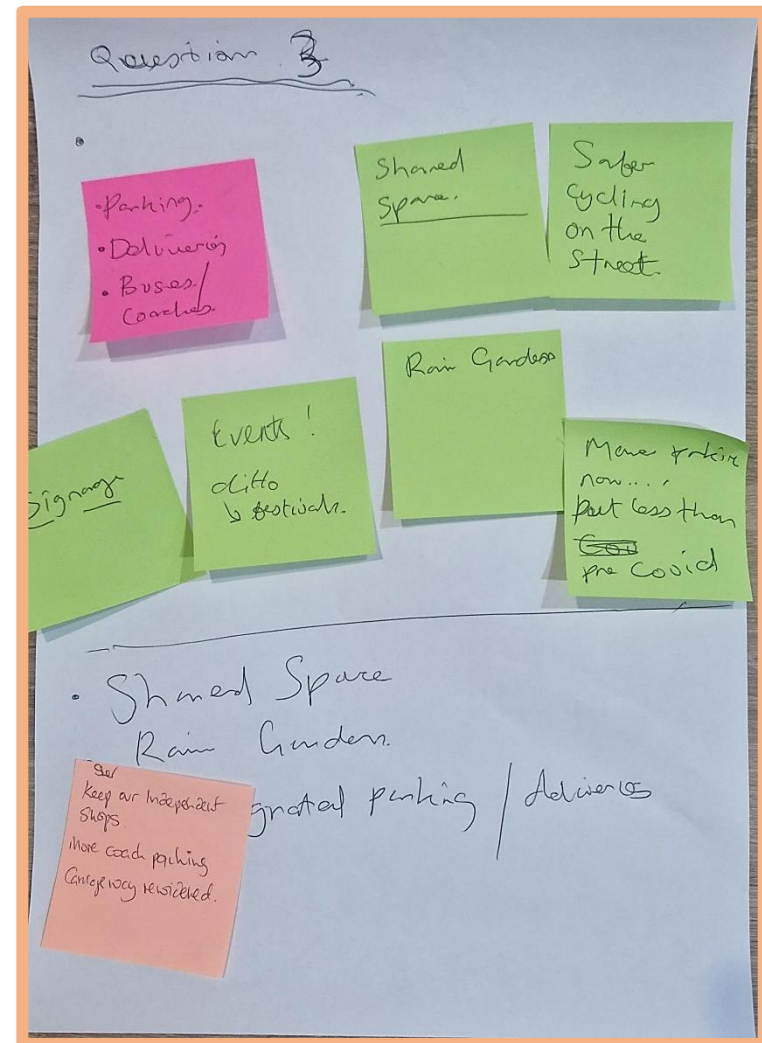 Question 3
• Parking.
• Deliveries
• Buses/
Coaches.
Shared
Space.
Safer
Cycling
on the
Street.
Signage
Events!
ditto
↳ festivals.
Rain Gardens
More parking
now....
but less than
pre Covid
• Shared Space
Rain Gardens
gnated parking / deliveries
Keep our Independent
Shops.
More coach parking
Carriageway rewidened.